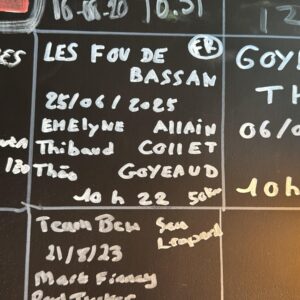 10.31
LES FOU DE FR
BASSAN
25/06/2025
EMELYNE ALLAIN
Thibaud COLLET
Théo GOYEAUD
10 h 22 50km
GOY
TH
06/0
10h
Team Ben Sea
Leopard
21/5/23
Mark Finney